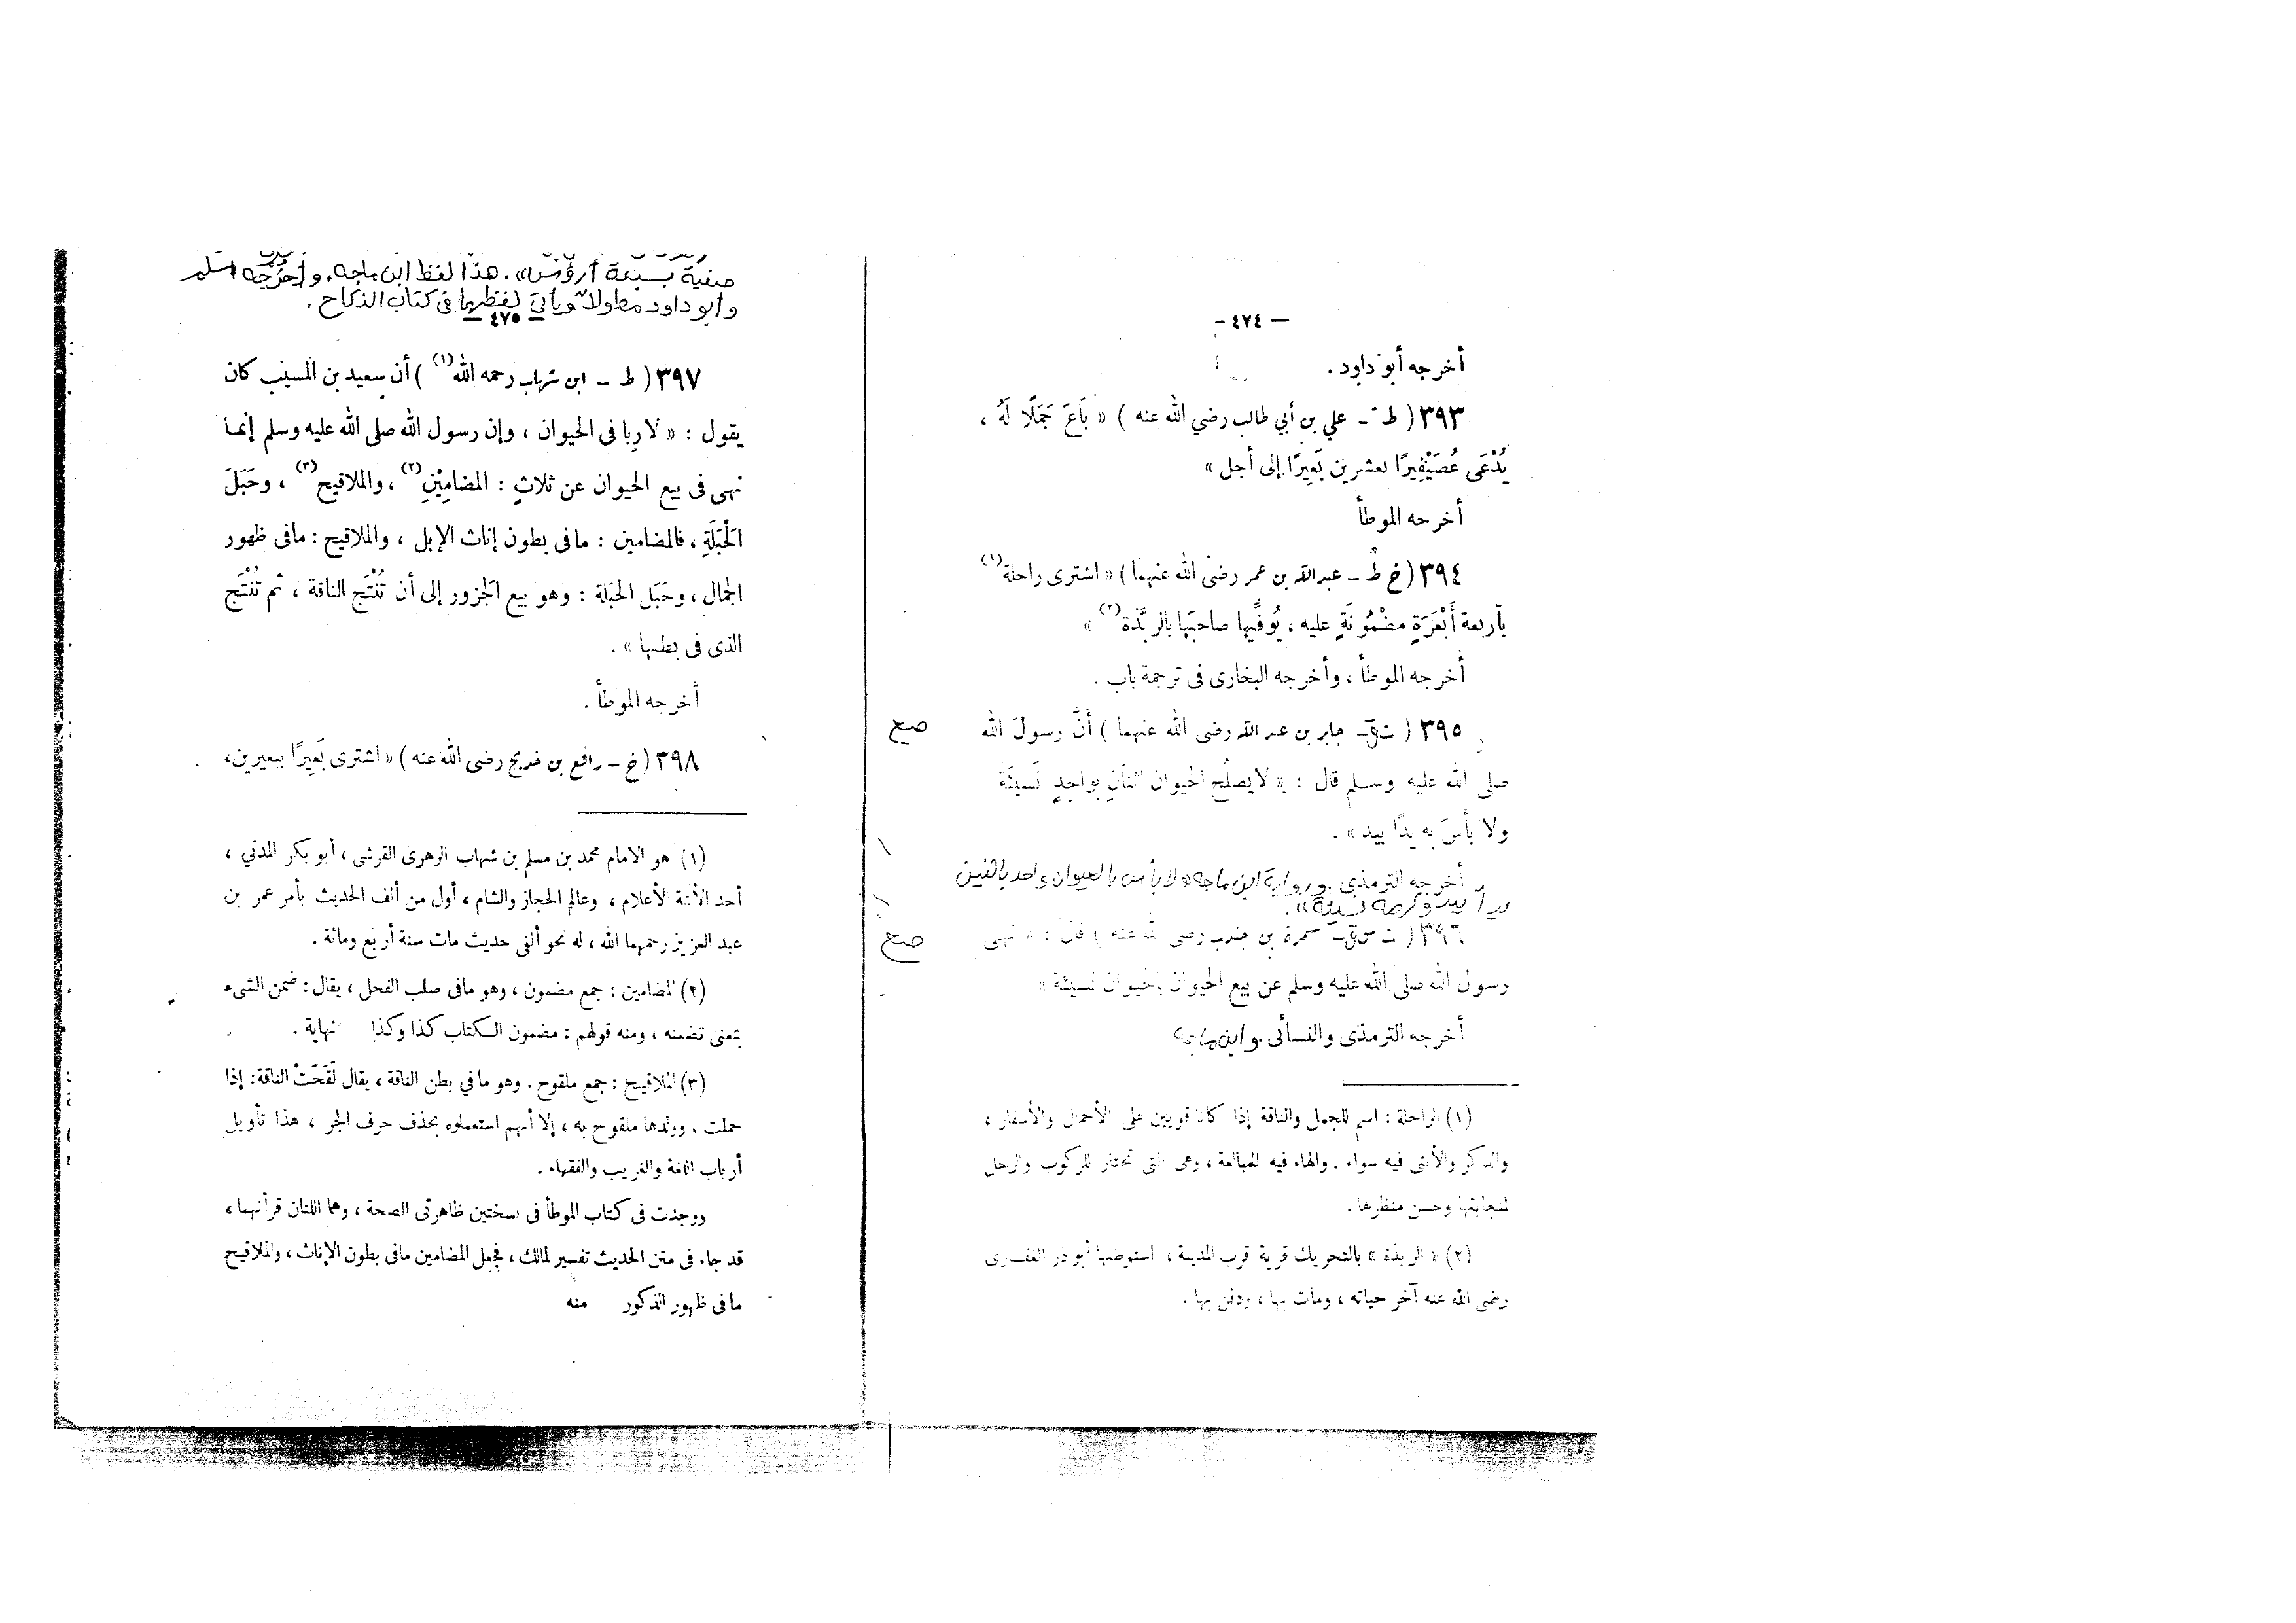 — ٤٧٤ —
أخرجه أبو داود .
٣٩٣ ( ط - علي بن أبي طالب رضي الله عنه ) « بَاعَ جَمَلًا لَهُ ،
يُدْعَى عُصَيْفِيرًا بعشرين بَعِيرًا إلى أجل »
أخرجه الموطأ
٣٩٤ ( خ ط - عبد الله بن عمر رضى الله عنهما ) « اشترى راحلة (١)
بأربعة أَبْعَرَةٍ مضْمُونَةٍ عليه ، يُوفِّيها صاحبَها بالربَّذة (٢) »
أخرجه الموطأ ، وأخرجه البخارى فى ترجمة باب .
٣٩٥ ( ت ق - جابر بن عبد الله رضى الله عنهما ) أَنَّ رسولَ الله
صحيح
صلى الله عليه وسلم قال : « لا يصلُح الحيوان اثنانِ بواحِدٍ نَسيئَةً
ولا بأسَ به يدًا بيد » .
أخرجه الترمذى . ورواية ابن ماجه « لا بأس بالحيوان واحد باثنين
يدا بيد وكرهه نسيئة » .
٣٩٦ ( ت س ق - سمرة بن جندب رضى الله عنه ) قال : « نهى
صحيح
رسول الله صلى الله عليه وسلم عن بيع الحيوان بالحيوان نسيئة »
أخرجه الترمذى والنسائى . وابن ماجه
(١) الراحلة : اسم للجمل والناقة إذا كانا قويين على الأحمال والأسفار ،
والذكر والأنثى فيه سواء . والهاء فيه للمبالغة ، وهى التى تختار للركوب والرحل
لنجابتها وحسن منظرها .
(٢) « الربذة » بالتحريك قرية قرب المدينة ، استوصبها أبو ذر الغفارى
رضى الله عنه آخر حياته ، ومات بها ، ودفن بها .
صفية بسبعة أرؤس » . هذا لفظ ابن ماجه . وأخرجه مسلم
وأبو داود مطولا ويأتي لفظهما فى كتاب النكاح .
— ٤٧٥ —
٣٩٧ ( ط - ابن شهاب رحمه الله (١) ) أن سعيد بن المسيب كان
يقول : « لا رِبا فى الحيوان ، وإن رسول الله صلى الله عليه وسلم إنما
نهى فى بيع الحيوان عن ثلاثٍ : المضامِيْنِ (٢) ، والملاقيح (٣) ، وحَبَلَ
الْحَبَلَةِ ، فالمضامين : مافى بطون إناث الإبل ، والملاقيح : مافى ظهور
الجمال ، وحَبَل الحبَلة : وهو بيع الجزور إلى أن تُنْتَج الناقة ، ثم تُنْتَج
الذى فى بطنها » .
أخرجه الموطأ .
٣٩٨ ( خ - رافع بن خديج رضى الله عنه ) « اشترى بَعِيرًا ببعيرين ،
(١) هو الامام محمد بن مسلم بن شهاب الزهرى القرشى ، أبو بكر المدني ،
أحد الأئمة الأعلام ، وعالم الحجاز والشام ، أول من ألف الحديث بأمر عمر بن
عبد العزيز رحمهما الله ، له نحو ألفى حديث مات سنة أربع ومائة .
(٢) المضامين : جمع مضمون ، وهو مافى صلب الفحل ، يقال : ضمن الشىء
بمعنى تضمنه ، ومنه قولهم : مضمون الكتاب كذا وكذا نهاية .
(٣) الملاقيح : جمع ملقوح . وهو ما في بطن الناقة ، يقال لَقَحَتْ الناقة : إذا
حملت ، وولدها ملقوح به ، إلا أنهم استعملوه بحذف حرف الجر ، هذا تأويل
أرباب اللغة والغريب والفقهاء .
ووجدت فى كتاب الموطأ فى نسختين ظاهرتى الصحة ، وهما اللتان قرأتهما ،
قد جاء فى متن الحديث تفسير لمالك ، فجعل المضامين مافى بطون الإناث ، والملاقيح
ما فى ظهور الذكور منه